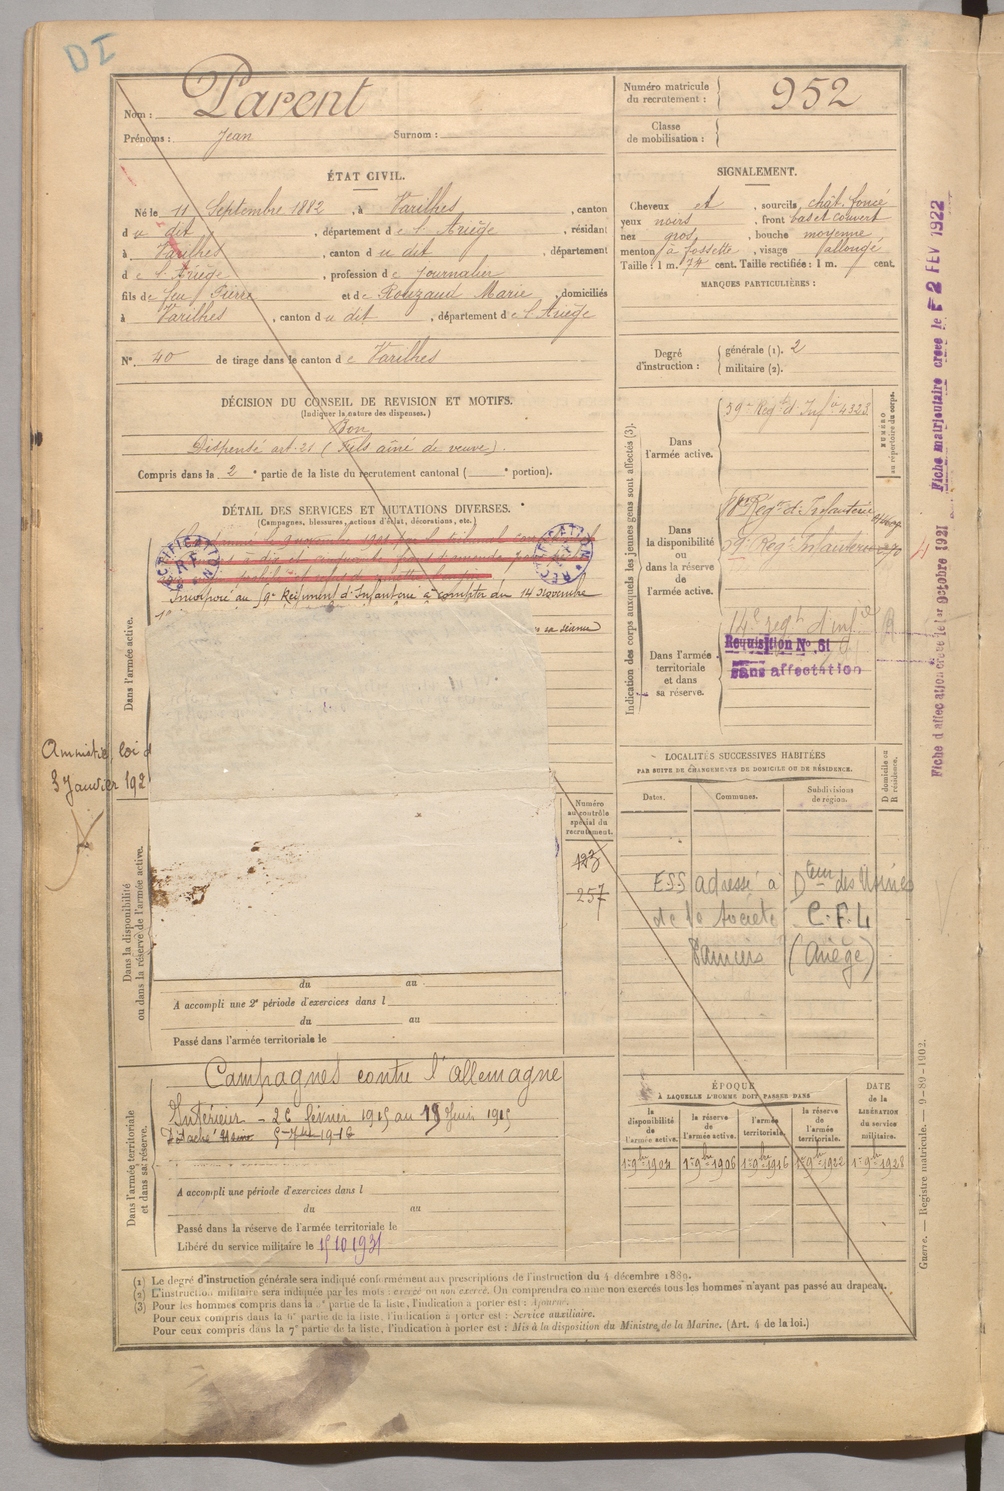 DI
Nom : Parent
Prénoms : Jean Surnom :
Numéro matricule du recrutement : 952
Classe de mobilisation :
ÉTAT CIVIL.
Né le 11 Septembre 1882, à Varilhes, canton
du dit, département de l'Ariège, résidant
à Varilhes, canton du dit, département
de l'Ariège, profession de Journalier
fils de feu Pierre et de Rouzaud Marie, domiciliés
à Varilhes, canton du dit, département de l'Ariège
N° 40 de tirage dans le canton de Varilhes
SIGNALEMENT.
Cheveux et, sourcils, chât. foncé
yeux noirs, front bas et couvert
nez gros, bouche moyenne
menton à fossette, visage allongé
Taille : 1 m. 74 cent. Taille rectifiée : 1 m. cent.
MARQUES PARTICULIÈRES :
Degré d'instruction : générale (1). 2
militaire (2).
DÉCISION DU CONSEIL DE REVISION ET MOTIFS.
(Indiquer la nature des dispenses.)
Bon
Dispensé art. 21 (Fils aîné de veuve)
Compris dans la 2e partie de la liste du recrutement cantonal ( portion).
DÉTAIL DES SERVICES ET MUTATIONS DIVERSES.
(Campagnes, blessures, actions d'éclat, décorations, etc.)
RECTIFICATION R.F.
RECTIFICATION
Incorporé au 59e Régiment d'Infanterie à compter du 14 Novembre
sa séance
Dans l'armée active.
Amnistie loi d
3 Janvier 192
Dans la disponibilité
ou dans la réserve de l'armée active.
Numéro
au contrôle
spécial du
recrutement.
257
du au
A accompli une 2e période d'exercices dans l
du au
Passé dans l'armée territoriale le
Dans l'armée territoriale
et dans sa réserve.
Campagnes contre l'allemagne
Intérieur - 26 février 1915 au 19 Juin 1915
A accompli une période d'exercices dans l
du au
Passé dans la réserve de l'armée territoriale le
Libéré du service militaire le 15 10 1931
Indication des corps auxquels les jeunes gens sont affectés (3).
NUMÉRO
au répertoire du corps.
Dans
l'armée active.
59e Régt d'Infie 4323
Dans
la disponibilité
ou
dans la réserve
de
l'armée active.
Régt d'Infanterie
59e Régt Infanterie
Dans l'armée
territoriale
et dans
sa réserve.
14e régt d'infie
Requisition N° 81
Sans affectation
R
Fiche d'affectation créée le 1er Octobre 1921
Fiche matriculaire créée le 2 FEV 1922
LOCALITÉS SUCCESSIVES HABITÉES
PAR SUITE DE CHANGEMENTS DE DOMICILE OU DE RÉSIDENCE.
D domicile ou
R résidence.
Dates. Communes. Subdivisions de région.
ESS adressé à Dteur des Usines
de la Société C.F.L
Pamiers (Ariège)
ÉPOQUE
À LAQUELLE L'HOMME DOIT PASSER DANS
DATE
de la
LIBÉRATION
du service
militaire.
la disponibilité de l'armée active.
la réserve de l'armée active.
l'armée territoriale.
la réserve de l'armée territoriale.
1er 9bre 1904 1er 9bre 1906 1er 9bre 1916 1er 9bre 1922 1er 9bre 1928
Guerre. — Registre matricule. — 9-89-1902.
(1) Le degré d'instruction générale sera indiqué conformément aux prescriptions de l'instruction du 4 décembre 1889.
(2) L'instruction militaire sera indiquée par les mots : exercé ou non exercé. On comprendra comme non exercés tous les hommes n'ayant pas passé au drapeau.
(3) Pour les hommes compris dans la 5e partie de la liste, l'indication à porter est : Ajourné.
Pour ceux compris dans la 6e partie de la liste, l'indication à porter est : Service auxiliaire.
Pour ceux compris dans la 7e partie de la liste, l'indication à porter est : Mis à la disposition du Ministre de la Marine. (Art. 4 de la loi.)